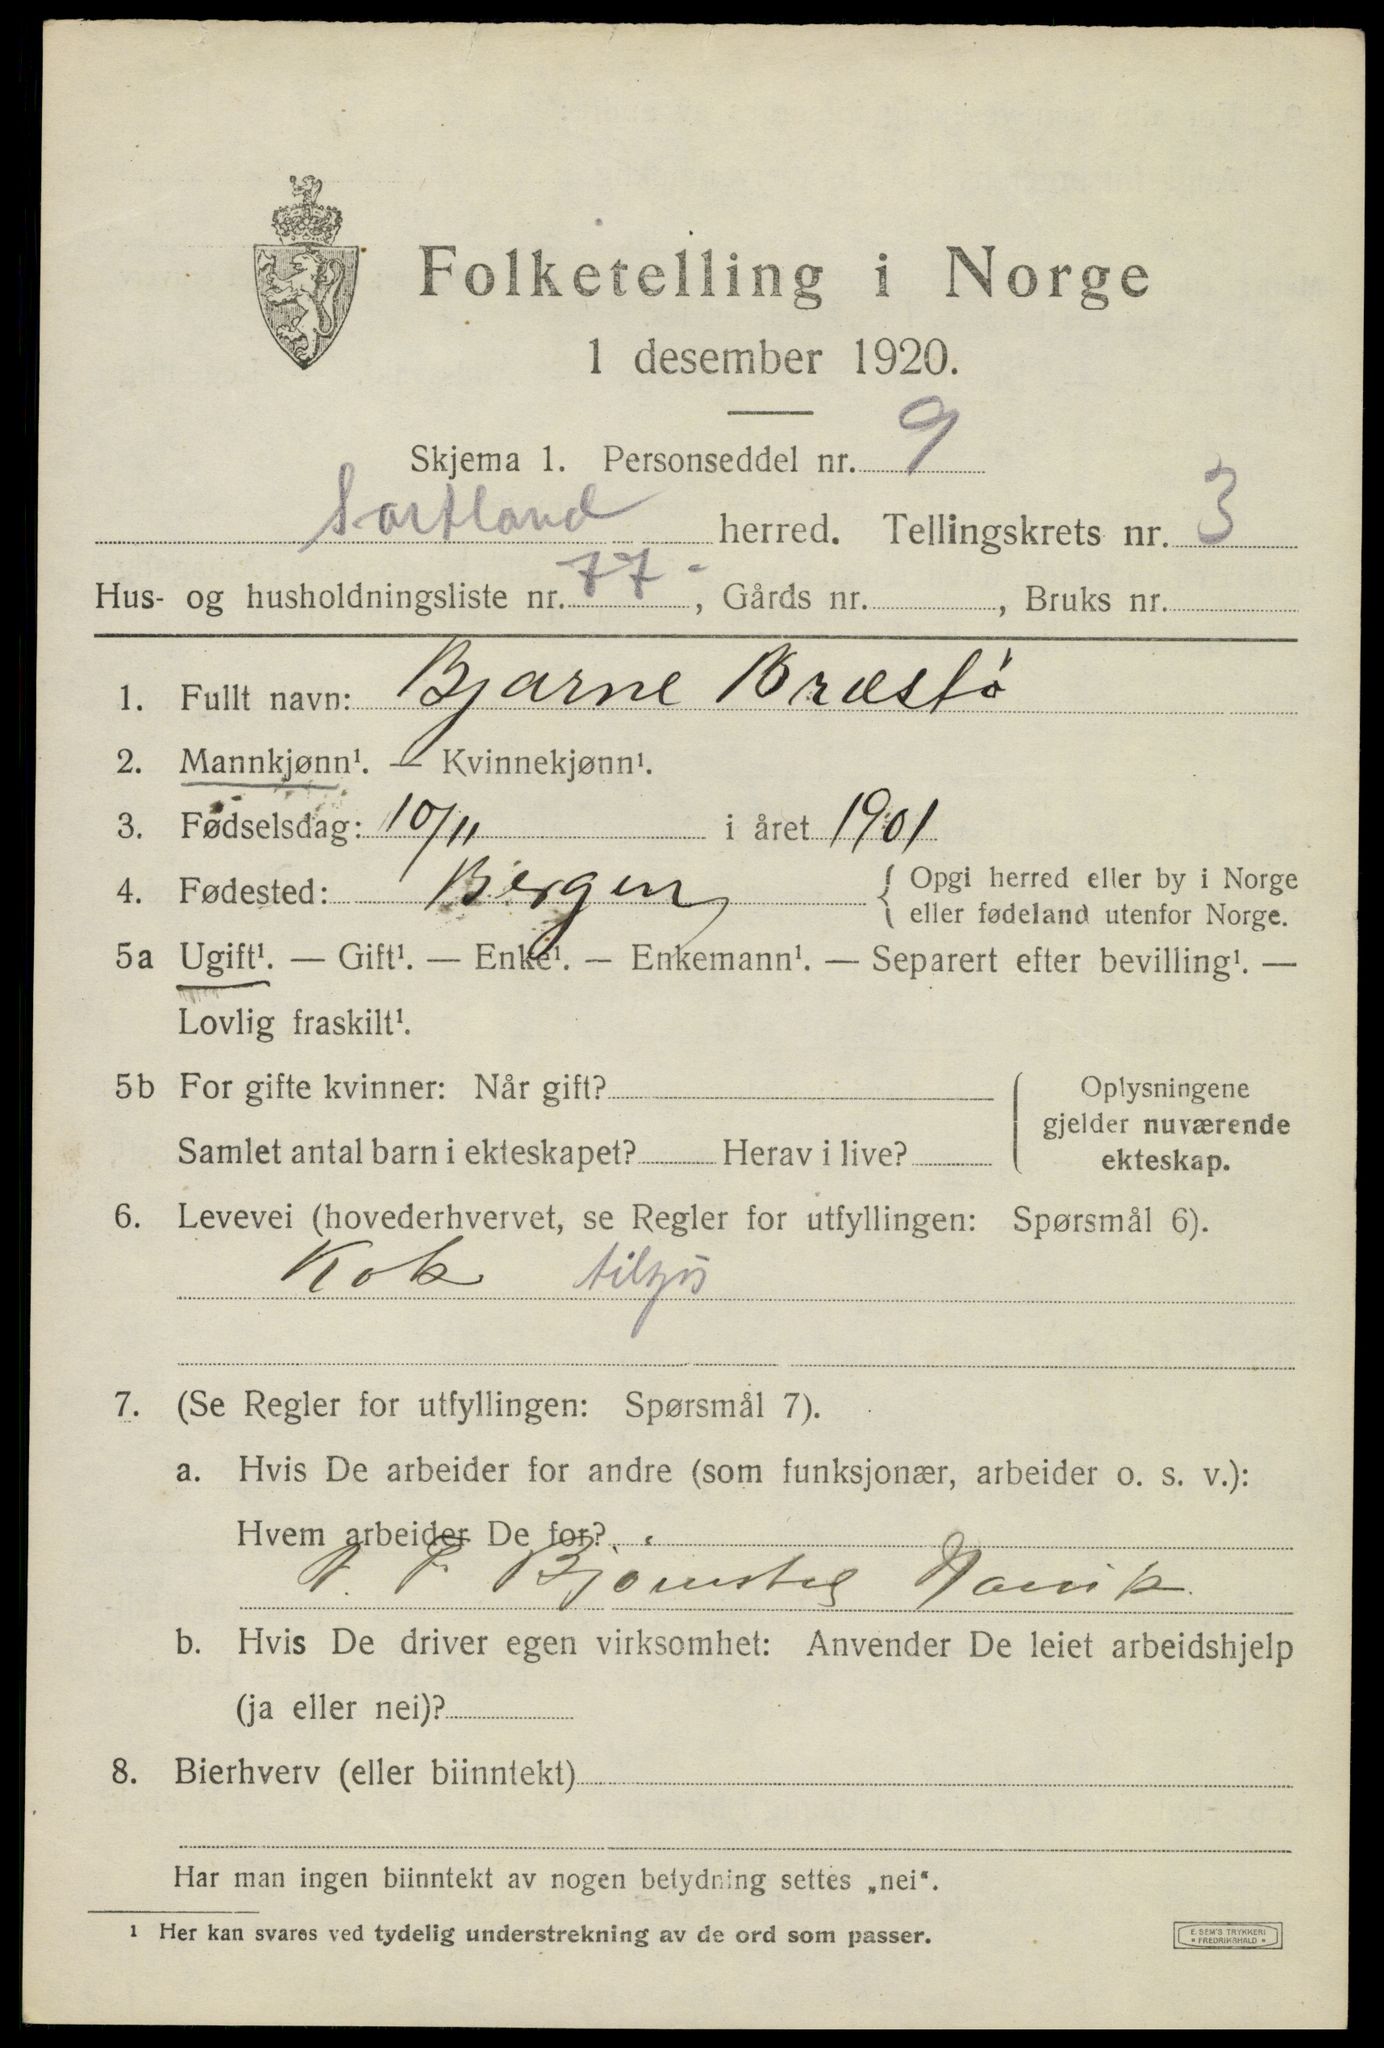 Folketelling i Norge
1 desember 1920.
Skjema 1. Personseddel nr. 9
Sortland herred. Tellingskrets nr. 3
Hus- og husholdningsliste nr. 77 -, Gårds nr. , Bruks nr.
1. Fullt navn: Bjarne Bræstø
2. Mannkjønn¹. — Kvinnekjønn¹.
3. Fødselsdag: 10/11 i året 1901
4. Fødested: Bergen { Opgi herred eller by i Norge
eller fødeland utenfor Norge.
5a Ugift¹. — Gift¹. — Enke¹. — Enkemann¹. — Separert efter bevilling¹. —
Lovlig fraskilt¹.
5b For gifte kvinner: Når gift?
Samlet antal barn i ekteskapet? Herav i live?
Oplysningene
gjelder nuværende
ekteskap.
6. Levevei (hovederhvervet, se Regler for utfyllingen: Spørsmål 6).
Kok
7. (Se Regler for utfyllingen: Spørsmål 7).
a. Hvis De arbeider for andre (som funksjonær, arbeider o. s. v.):
Hvem arbeider De for?
b. Hvis De driver egen virksomhet: Anvender De leiet arbeidshjelp
(ja eller nei)?
8. Bierhverv (eller biinntekt)
Har man ingen biinntekt av nogen betydning settes „nei“.
¹ Her kan svares ved tydelig understrekning av de ord som passer.
E. SEM'S TRYKKERI
FREDRIKSHALD